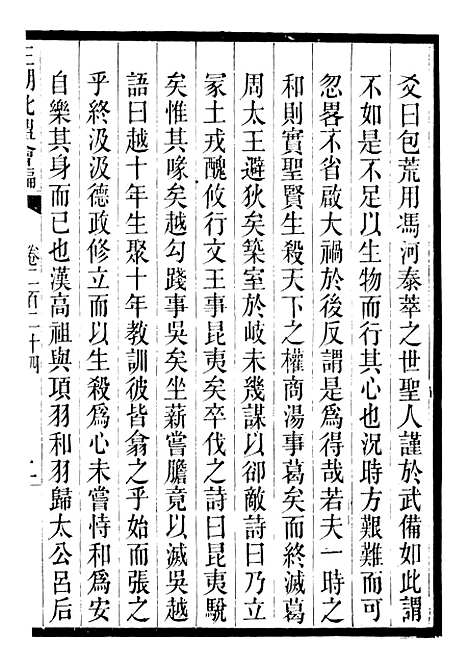 爻曰包荒用馮河泰萃之世聖人謹於武備如此謂
不如是不足以生物而行其心也況時方艱難而可
忽畧不省啟大禍於後反謂是爲得哉若夫一時之
和則實聖賢生殺天下之權商湯事葛矣而終滅葛
周太王避狄矣築室於岐未幾謀以卻敵詩曰乃立
冡土戎醜攸行文王事昆夷矣卒伐之詩曰昆夷駾
矣惟其喙矣越勾踐事吳矣坐薪嘗膽竟以滅吳越
語曰越十年生聚十年教訓彼皆翕之乎始而張之
乎終汲汲德政修立而以生殺爲心未嘗恃和爲安
自樂其身而已也漢高祖與項羽和羽歸太公呂后
三朝北盟會編
卷二百二十四